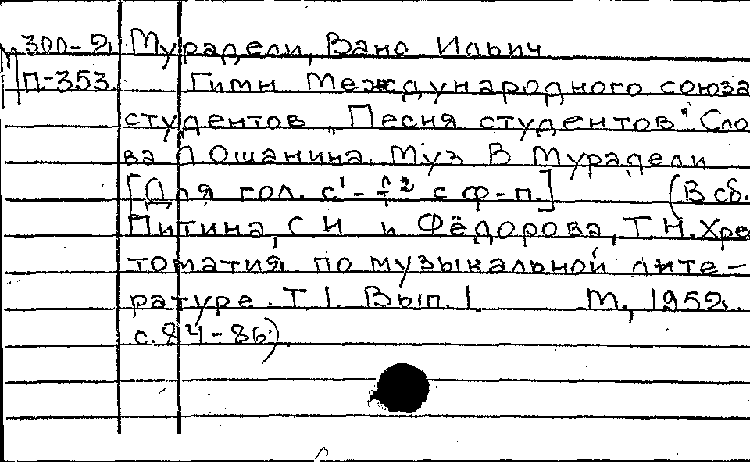 М 300-2. Мурадели, Вано Ильич
П-353. Гимн Международного союза
студентов „Песня студентов". Сло
ва Л Ошанина. Муз В Мурадели
[Для гол. с¹-f² с ф-п.] (В сб.
Питина, С И и Фёдорова, Т.Н. Хре
томатия по музыкальной лите-
ратуре. Т I. Вып. I М, 1952.
с. 84-86).